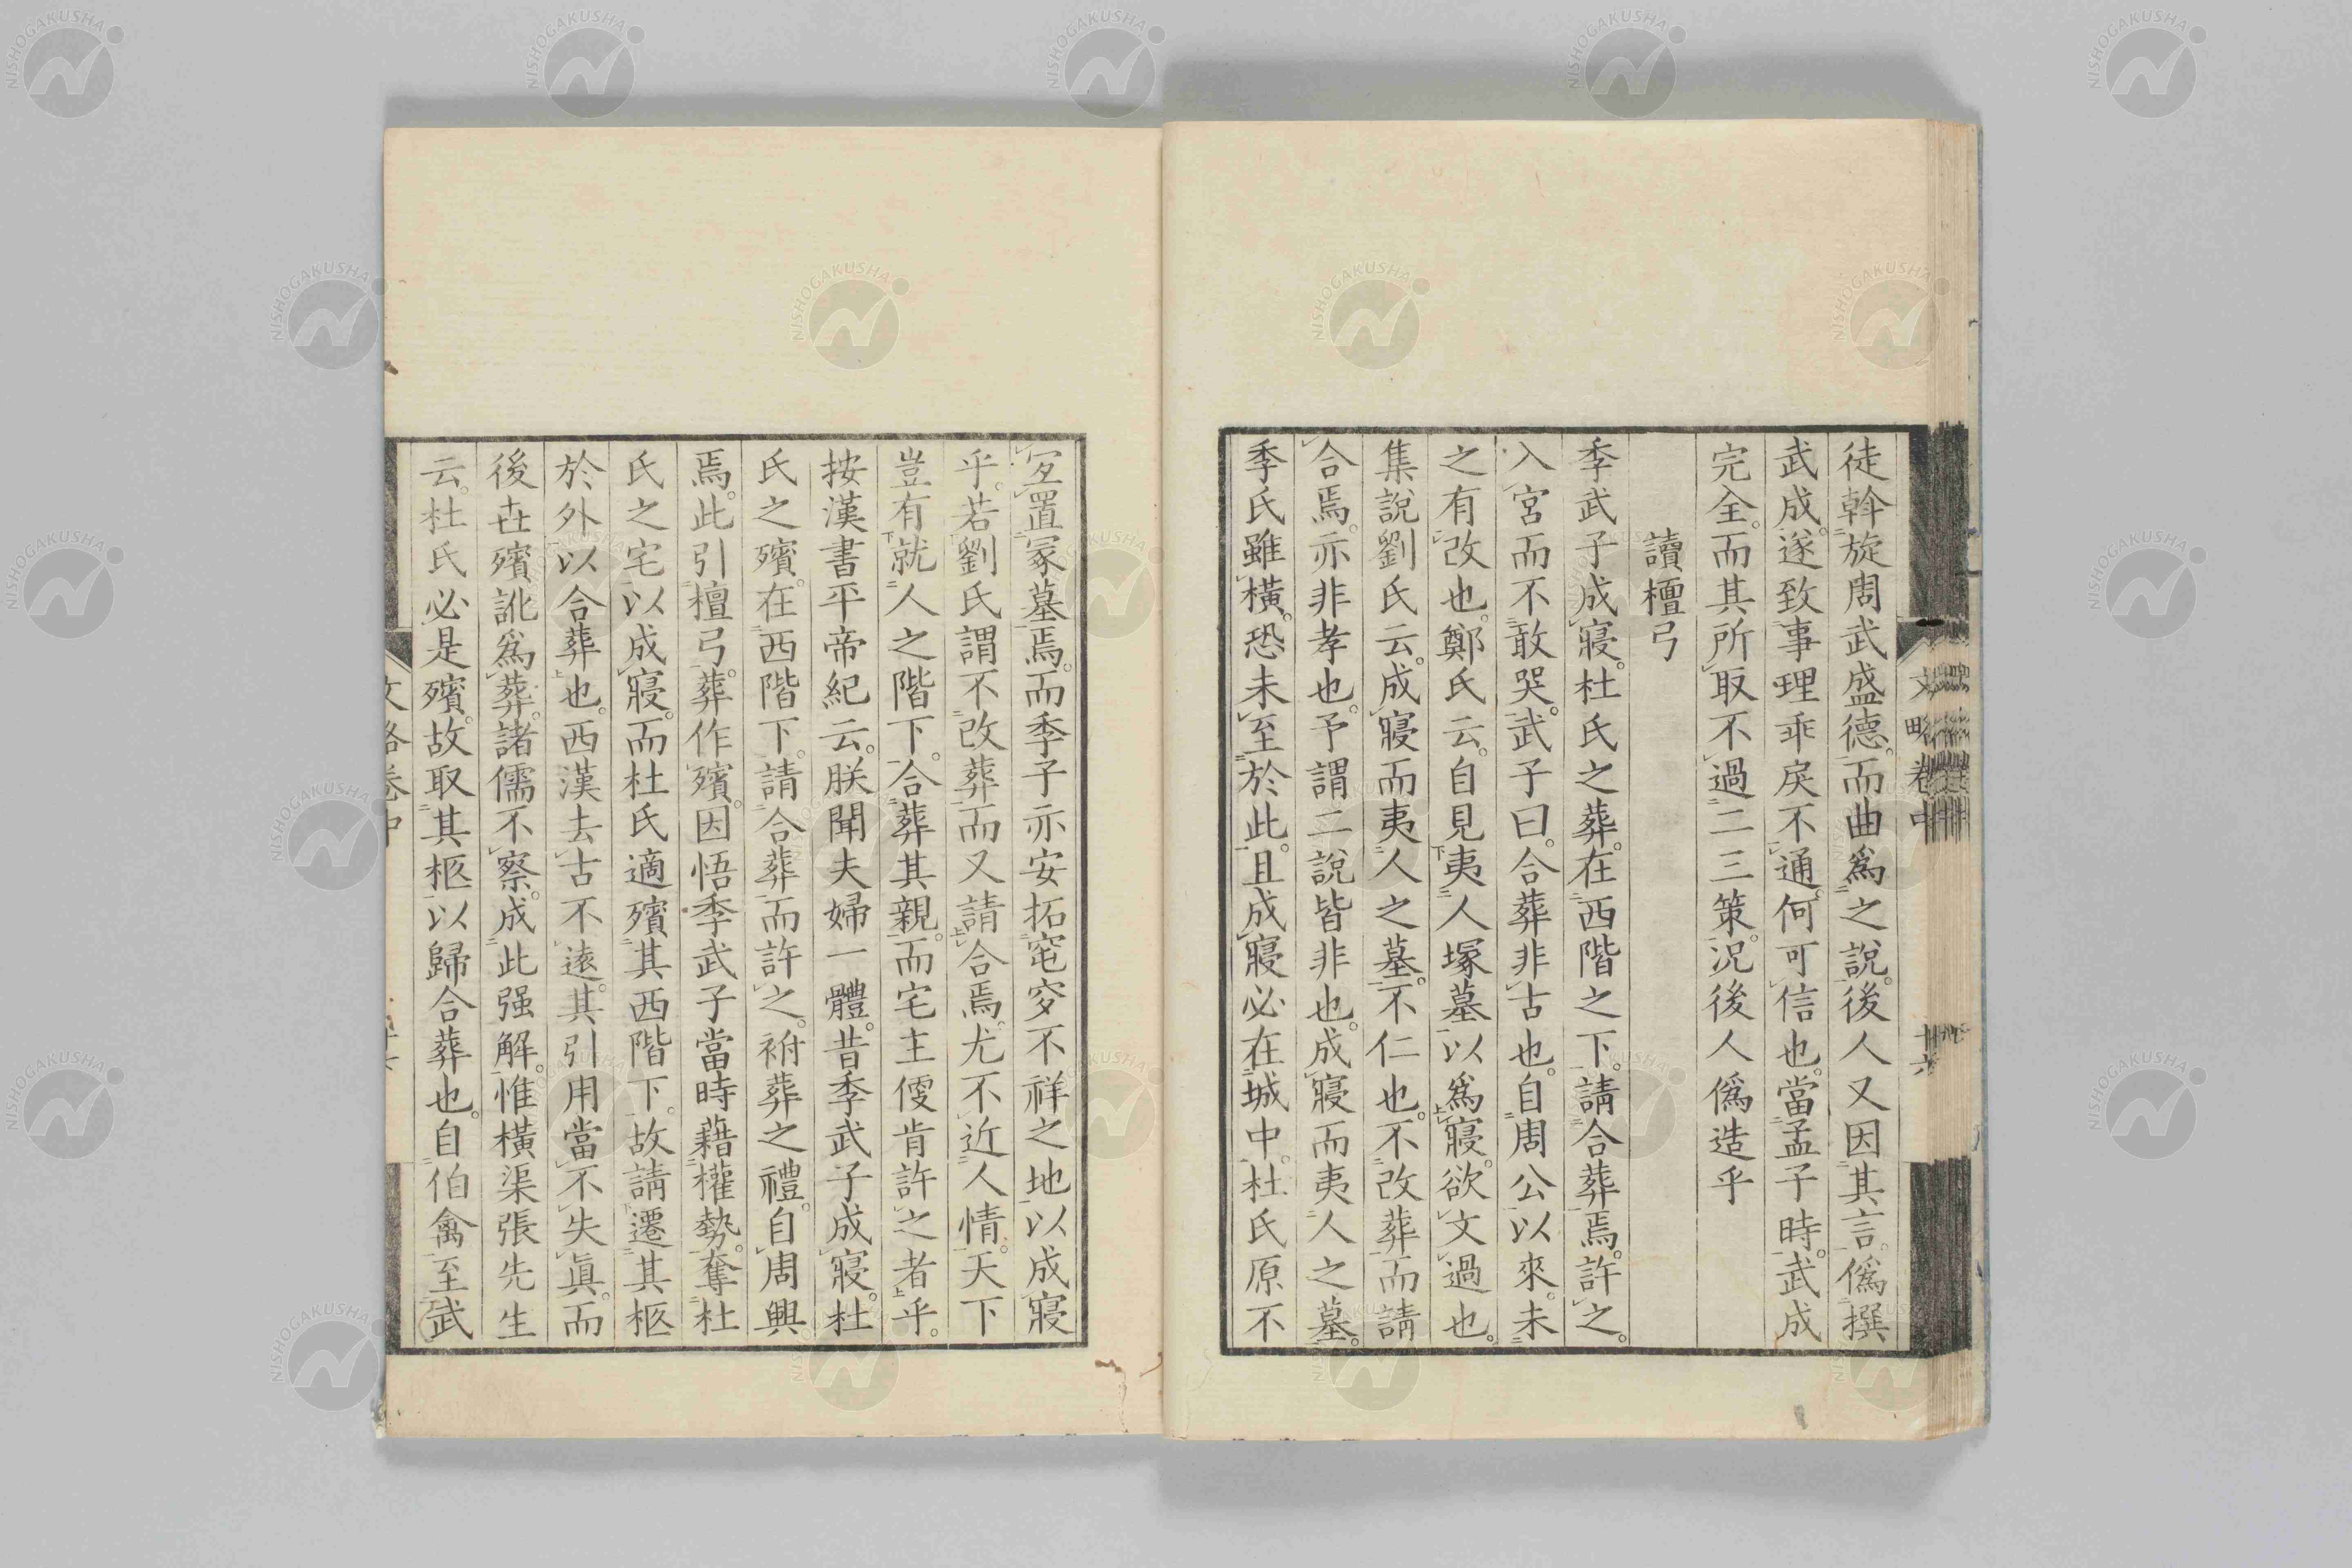 徒斡旋周武盛德。而曲爲之說。後人又因其言。僞撰
武成。遂致事理乖戾不通。何可信也。當孟子時。武成
完全。而其所取不過二三策。況後人僞造乎
讀檀弓
季武子成寢。杜氏之葬。在西階之下。請合葬焉。許之。
入宮而不敢哭。武子曰。合葬非古也。自周公以來。未
之有改也。鄭氏云。自見夷人塚墓以爲寢。欲文過也。
集說劉氏云。成寢而夷人之墓。不仁也。不改葬而請
合焉。亦非孝也。予謂二說皆非也。成寢而夷人之墓。
季氏雖橫。恐未至於此。且成寢必在城中。杜氏原不
文略卷中
十六
宜置冢墓焉。而季子亦安拓窀穸不祥之地以成寢
乎。若劉氏謂不改葬而又請合焉。尤不近人情。天下
豈有就人之階下。合葬其親。而宅主優肯許之者乎。
按漢書平帝紀云。朕聞夫婦一體。昔季武子成寢。杜
氏之殯。在西階下。請合葬而許之。祔葬之禮。自周興
焉。此引檀弓。葬作殯。因悟季武子當時藉權勢。奪杜
氏之宅以成寢。而杜氏適殯其西階下。故請遷其柩
於外以合葬也。西漢去古不遠。其引用當不失眞。而
後世殯訛爲葬。諸儒不察。成此强解。惟橫渠張先生
云。杜氏必是殯。故取其柩以歸合葬也。自伯禽至武